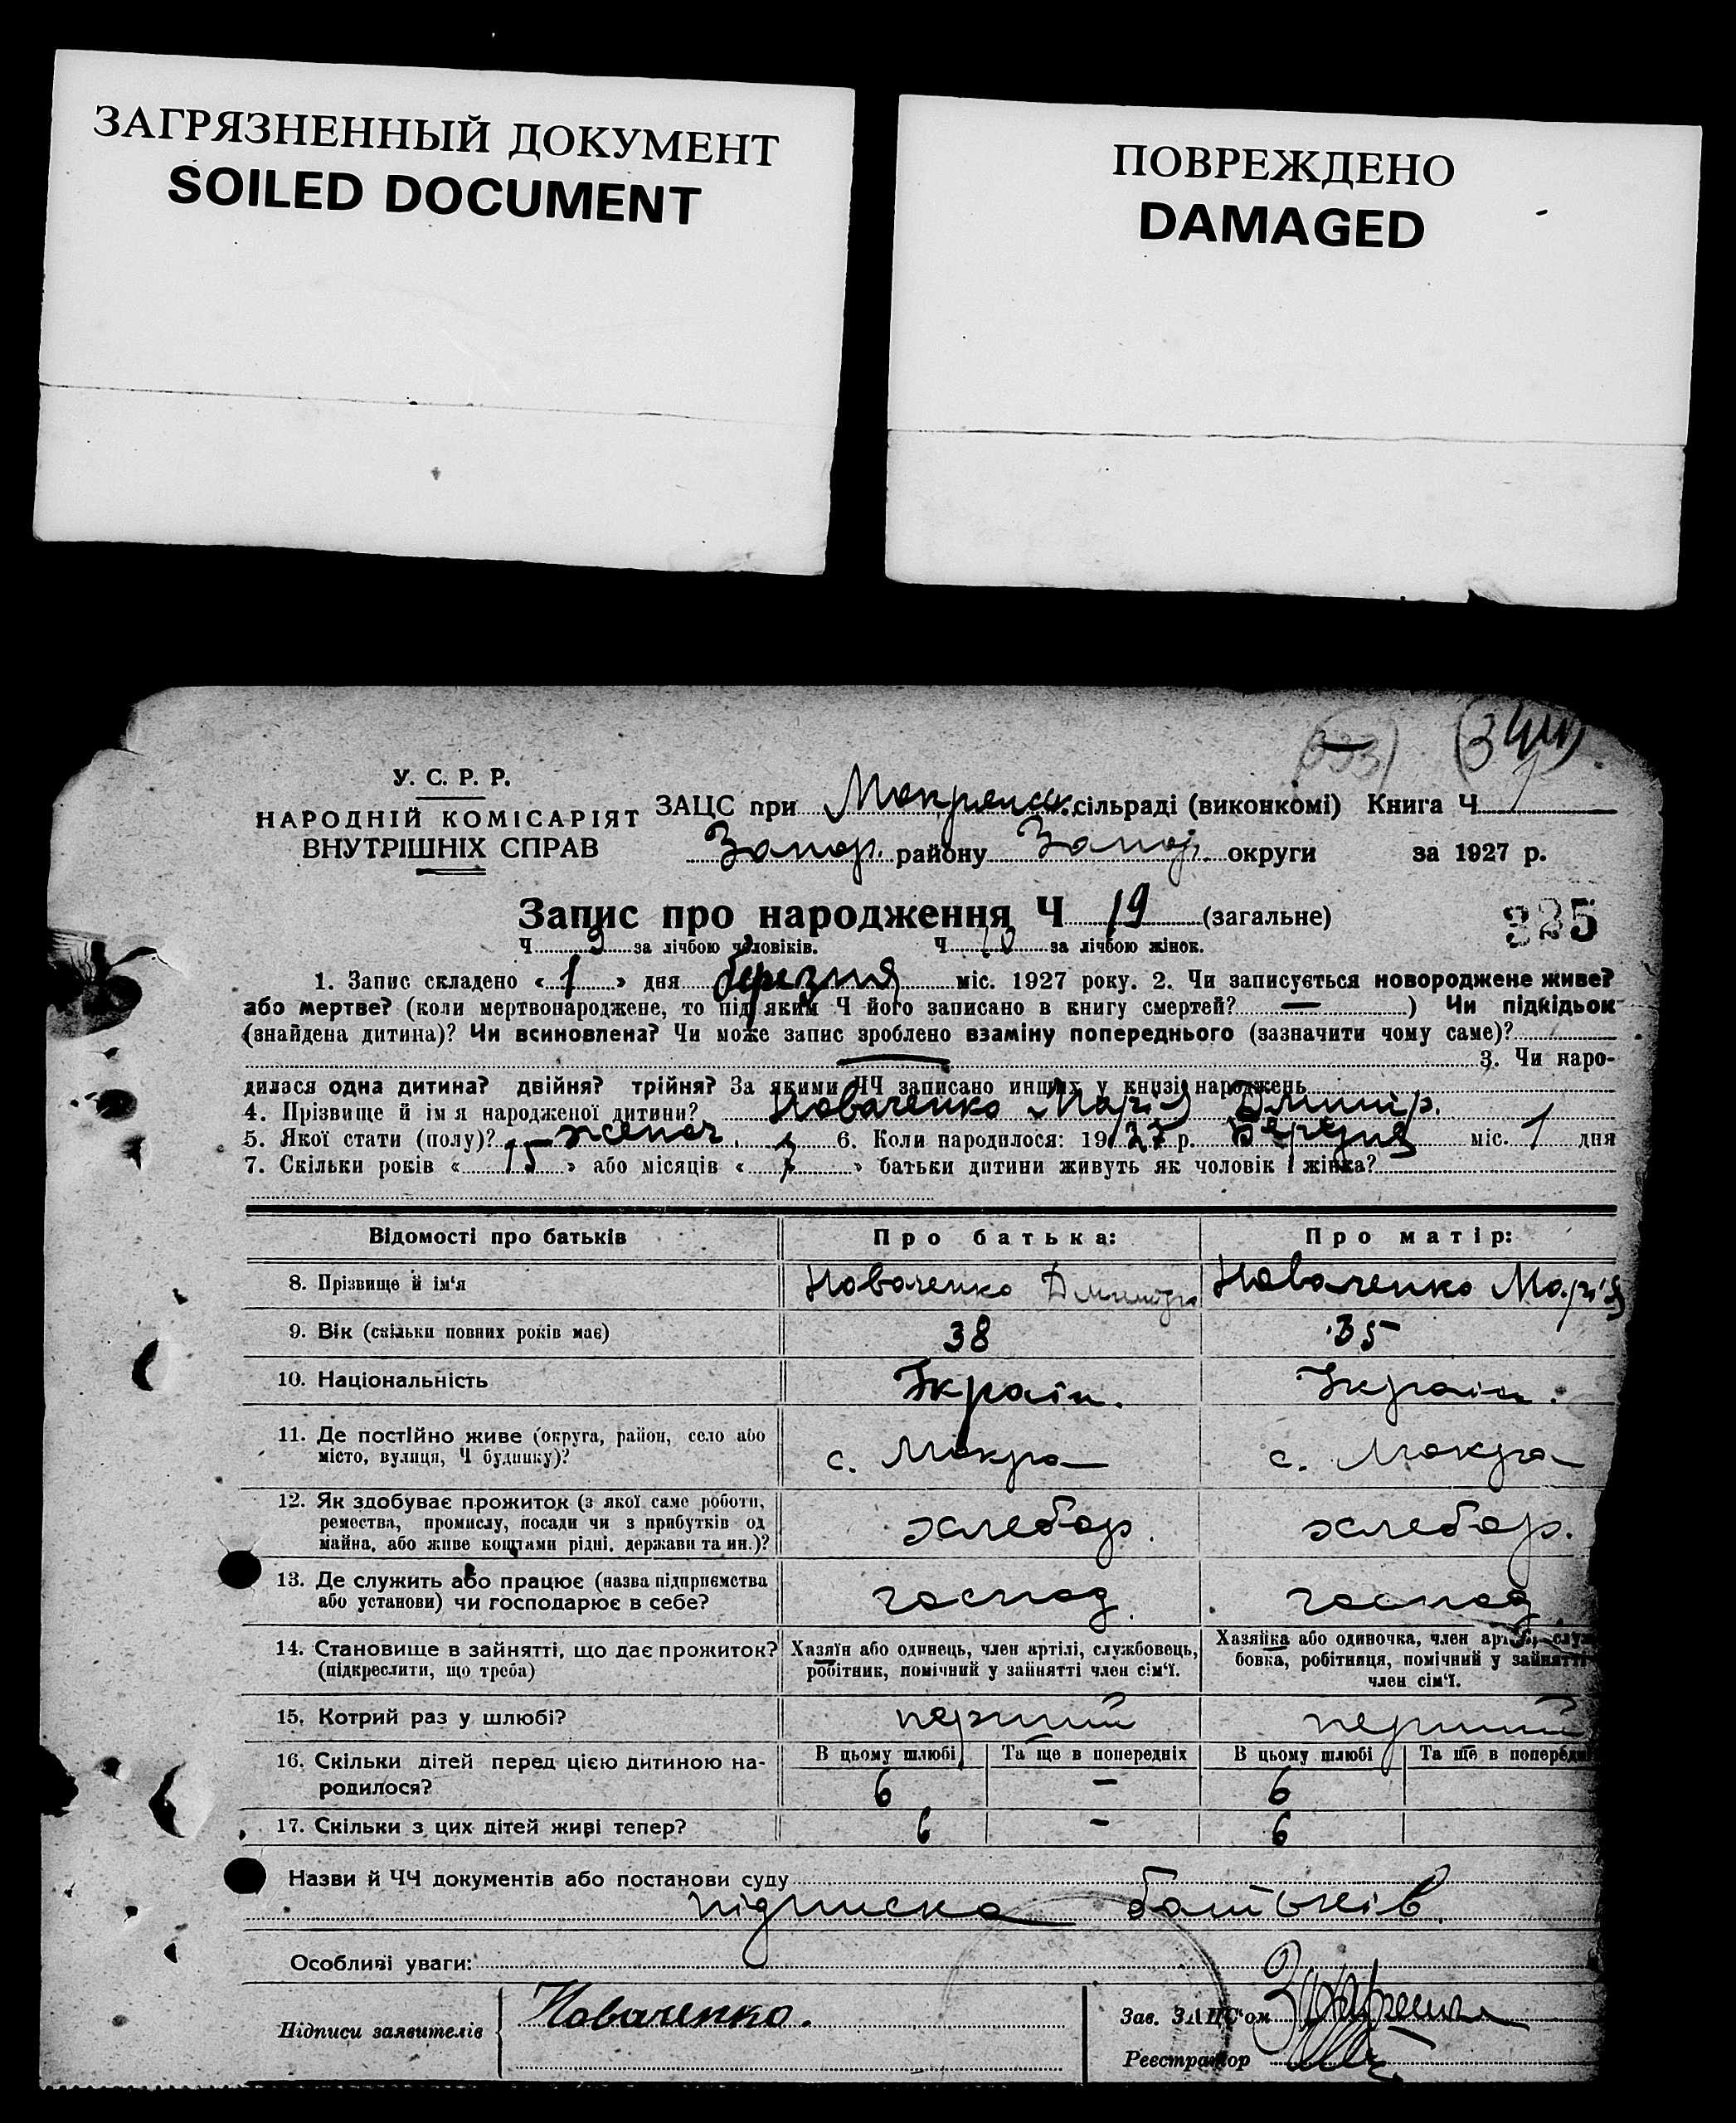 ЗАГРЯЗНЕННЫЙ ДОКУМЕНТ
SOILED DOCUMENT
ПОВРЕЖДЕНО
DAMAGED
(333) (344)
У. С. Р. Р.
НАРОДНІЙ КОМІСАРІЯТ
ВНУТРІШНІХ СПРАВ
ЗАЦС при Мокрянск. сільраді (виконкомі) Книга Ч
Запор. району Запор. округи за 1927 р.
Запис про народження Ч 19 (загальне)
335
Ч 9 за лічбою чоловіків. Ч 10 за лічбою жінок.
1. Запис складено « 1 » дня березня міс. 1927 року. 2. Чи записується новороджене живе?
або мертве? (коли мертвонароджене, то під яким Ч його записано в книгу смертей? — ) Чи підкідьок
(знайдена дитина)? Чи всиновлена? Чи може запис зроблено взаміну попереднього (зазначити чому саме)?
— 3. Чи наро-
дилася одна дитина? двійня? трійня? За якими ЧЧ записано инших у книзі народжень
4. Прізвище й ім я народженої дитини? Новаченко Марія Дмитр.
5. Якої стати (полу)? жіноч. 6. Коли народилося: 1927 р. Березня міс. 1 дня
7. Скільки років « 15 » або місяців « 3 » батьки дитини живуть як чоловік і жінка?
Відомості про батьків Про батька: Про матір:
8. Прізвище й ім'я Новаченко Дмитро Новаченко Марія
9. Вік (скільки повних років має) 38 35
10. Національність Україн. Україн.
11. Де постійно живе (округа, район, село або
місто, вулиця, Ч будинку)? с. Мокра с. Мокра
12. Як здобуває прожиток (з якої саме роботи,
ремества, промислу, посади чи з прибутків од
майна, або живе коштами рідні, держави та ин.)? хлебор. хлебор.
13. Де служить або працює (назва підприємства
або установи) чи господарює в себе? господ. господ
14. Становище в зайнятті, що дає прожиток?
(підкреслити, що треба)
Хазяїн або одинець, член артілі, службовець,
робітник, помічний у зайнятті член сім'ї.
Хазяйка або одиночка, член артілі, служ
бовка, робітниця, помічний у зайнятті
член сім'ї.
15. Котрий раз у шлюбі? перший перший
16. Скільки дітей перед цією дитиною на-
родилося?
В цьому шлюбі Та ще в попередніх В цьому шлюбі Та ще в попередні
6 – 6
17. Скільки з цих дітей живі тепер? 6 – 6
Назви й ЧЧ документів або постанови суду
підписка батьків
Особливі уваги:
Підписи заявителів Новаченко.
Зав. ЗАЦС'ом
Реєстратор